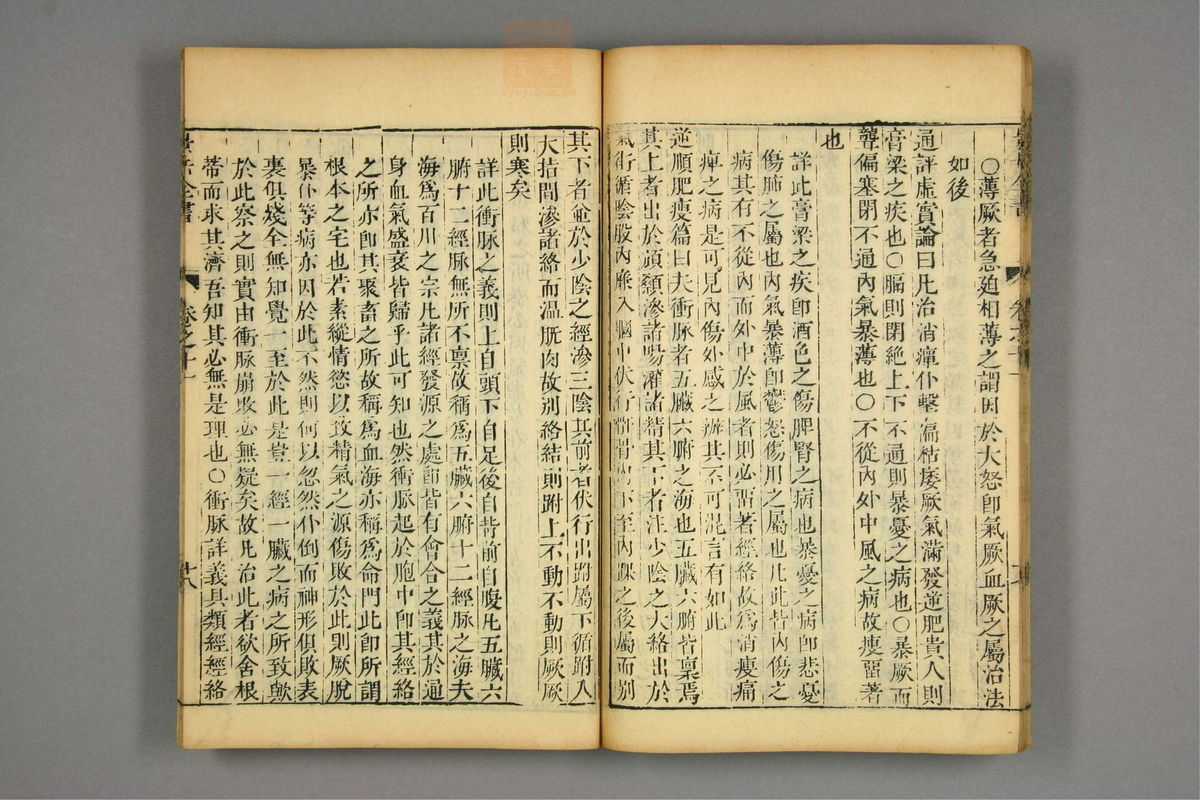 ○薄厥者急廹相薄之謂因於大怒卽氣厥血厥之屬治法
如後
通評虛實論曰凡治消癉仆擊偏枯痿厥氣滿發逆肥貴人則
膏梁之疾也○膈則閉絶上下不通則暴憂之病也○暴厥而
聾偏塞閉不通內氣暴薄也○不從內外中風之病故瘦畱著
也
詳此膏梁之疾卽酒色之傷脾腎之病也暴憂之病卽悲憂
傷肺之屬也內氣暴薄卽鬱怒傷用之屬也凡此皆內傷之
病其有不從內而外中於風者則必畱著經絡故爲消瘦痛
痺之病是可見內傷外感之辨其不可混言有如此
逆順肥瘦篇曰夫衝脉者五臟六腑之海也五臟六腑皆禀焉
其上者出於頏顙滲諸陽灌諸精其下者注少陰之大絡出於
氣街循陰股內廉入膕中伏行骭骨內下至內踝之後屬而別
其下者並於少陰之經滲三陰其前者伏行出跗屬下循跗入
大指間滲諸絡而温肌肉故別絡結則跗上不動不動則厥厥
則寒矣
詳此衝脉之義則上自頭下自足後自背前自腹凡五臟六
腑十二經脉無所不禀故稱爲五臟六腑十二經脉之海夫
海爲百川之宗凡諸經發源之處卽皆有會合之義其於通
身血氣盛衰皆歸乎此可知也然衝脉起於胞中卽其經絡
之所亦卽其聚畜之所故稱爲血海亦稱爲命門此卽所謂
根本之宅也若素縱情慾以致精氣之源傷敗於此則厥脫
暴仆等病亦因於此不然則何以忽然仆倒而神形俱敗表
裏俱殘全無知覺一至於此是豈一經一臟之病之所致歟
於此察之則實由衝脉崩敗必無疑矣故凡治此者欲舍根
蒂而求其濟吾知其必無是理也○衝脉詳義具類經經絡
景岳全書
卷之十一
十八